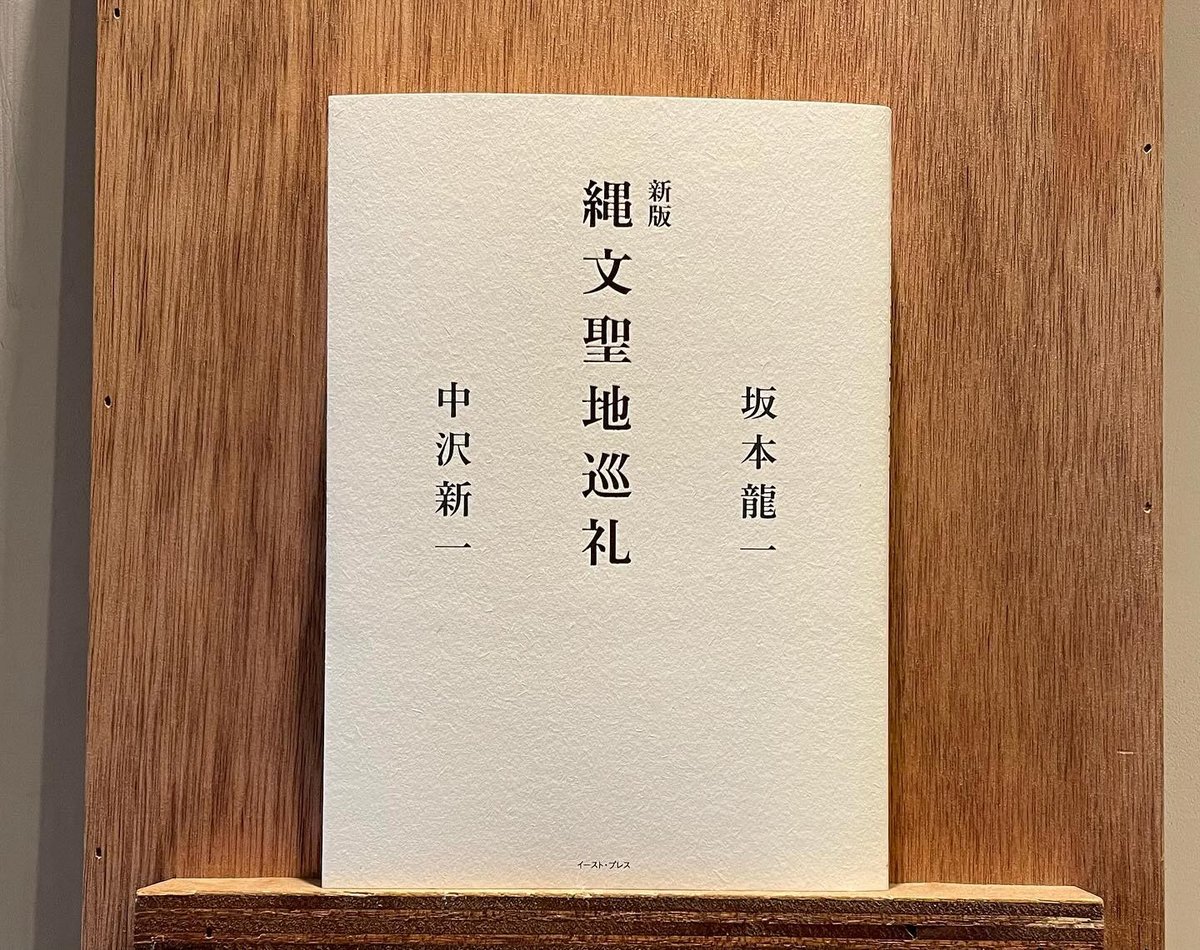 坂本龍一
新版
縄文聖地巡礼
中沢新一
イースト・プレス